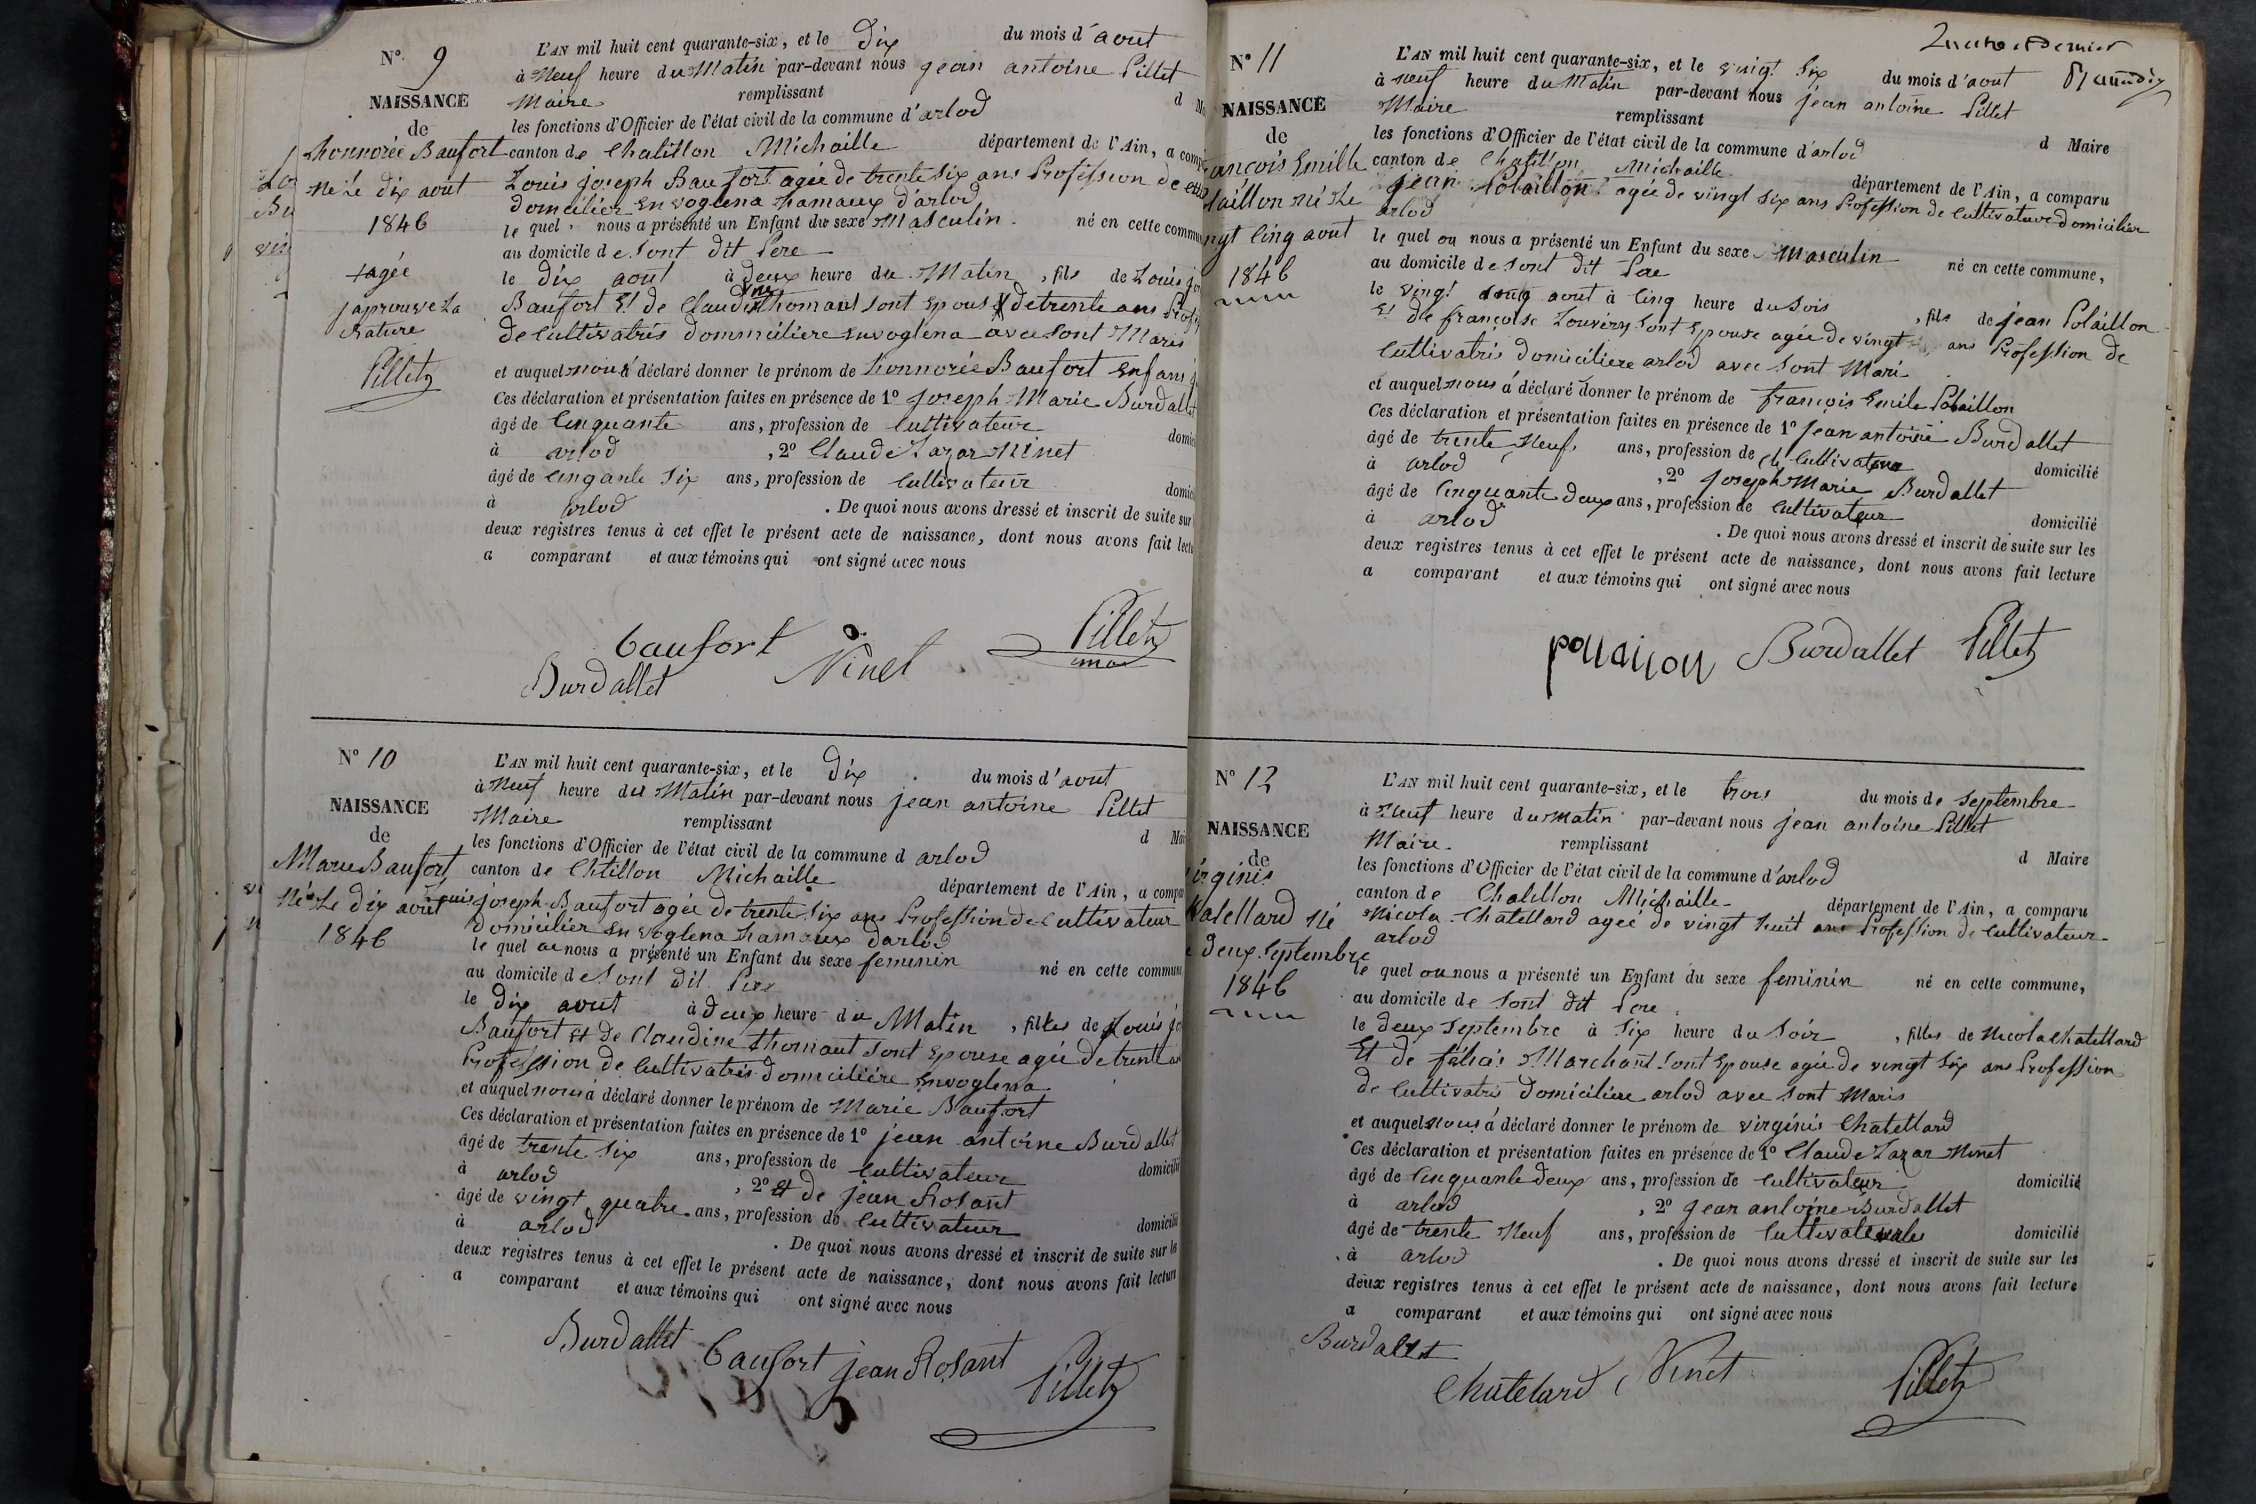 N° 9
NAISSANCE
de
honnorée Baufort
né Le dix août
1846
+agée
japrouve La
Rature
Pilletz
L'AN mil huit cent quarante-six, et le dix du mois d'aout
à Neuf heure du Matin par-devant nous jean antoine Pillet
Maire remplissant
les fonctions d'Officier de l'état civil de la commune d'arlod
canton de Chatillon Michaille département de l'Ain, a
Louis joseph Baufort agée de trente six ans Profession de
domcilier en voglena hamaux d'arlod
le quel nous a présenté un Enfant du sexe Masculin né en cette
au domicile de sont dit Pere
le dix aout à deux heure du Matin, fils de Louis
Baufort Et de Claudine thomant sont Epouse de trente ans
de Cultivatris dommiciliere envoglena avec sont Maris
et auquel nous à déclaré donner le prénom de honnorée Baufort Enfant
Ces déclaration et présentation faites en présence de 1° joseph Marie Burdallet
âgé de Cinquante ans, profession de Cultivateur
à arlod, 2° Claude Lazar Ninet
âgé de cinqante six ans, profession de Cultivateur
à arlod. De quoi nous avons dressé et inscrit de suite sur
deux registres tenus à cet effet le présent acte de naissance, dont nous avons fait
a comparant et aux témoins qui ont signé avec nous
baufort Ninet Pilletz
Burdallet
N° 10
NAISSANCE
de
Marie Baufort
Née Le dix août
1846
L'AN mil huit cent quarante-six, et le dix du mois d'aout
à Neuf heure du Matin par-devant nous jean antoine Pillet
Maire remplissant
les fonctions d'Officier de l'état civil de la commune d arlod
canton de Chtillon Michaille département de l'Ain, a
Louis joseph Baufort agée de trente six ans Profession de Cultivateur
domicilier en voglena hamaux darlod
le quel nous a présenté un Enfant du sexe feminin né en cette
au domicile de sont dit Pere
le dix aout à deux heure du Matin, filles de Louis
Baufort Et de Claudine thomant sont Epouse agée de trente
Profession de Cultivatris domiciliére envoglena
et auquel nous à déclaré donner le prénom de Marie Baufort
Ces déclaration et présentation faites en présence de 1° jean antoine Burdallet
âgé de trente six ans, profession de Cultivateur
à arlod, 2° Et de jean Rosant
âgé de vingt quatre ans, profession de Cultivateur
à arlod. De quoi nous avons dressé et inscrit de suite sur les
deux registres tenus à cet effet le présent acte de naissance, dont nous avons fait lecture
a comparant et aux témoins qui ont signé avec nous
Burdallet baufort jean Rosant Pilletz
N° 11
NAISSANCE
de
1846
L'AN mil huit cent quarante-six, et le vingt Six du mois d'aout
à neuf heure du Matin par-devant nous jean antoine Pillet
Maire remplissant
les fonctions d'Officier de l'état civil de la commune d'arlod d Maire
canton de Chatillon Michaille département de l'Ain, a comparu
jean Polaillon agée de vingt six ans Profession de Cultivateur domicilier
arlod
le quel ou nous a présenté un Enfant du sexe Masculin né en cette commune,
au domicile de sont dit Pere
le vingt cinq aout à Cinq heure du Soir, fils de jean Polaillon
Et de françoise Louviery sont Epouse agée de vingt ans Profession de
Cultivatris domiciliere arlod avec sont Mari
et auquel nous à déclaré donner le prénom de françois Emile Polaillon
Ces déclaration et présentation faites en présence de 1° jean antoine Burdallet
âgé de trente Neuf ans, profession de Cultivateur domicilié
à arlod, 2° joseph Marie Burdallet
âgé de Cinquante deux ans, profession de Cultivateur domicilié
à arlod. De quoi nous avons dressé et inscrit de suite sur les
deux registres tenus à cet effet le présent acte de naissance, dont nous avons fait lecture
a comparant et aux témoins qui ont signé avec nous
Burdallet Pilletz
N° 12
NAISSANCE
de
deux Septembre
1846
L'AN mil huit cent quarante-six, et le trois du mois de Septembre
à Neuf heure du matin par-devant nous jean antoine Pillet
Maire remplissant d Maire
les fonctions d'Officier de l'état civil de la commune d'arlod
canton de Chatillon Michaille département de l'Ain, a comparu
Nicola Chatellard agée de vingt huit ans Profession de Cultivateur
arlod
le quel ou nous a présenté un Enfant du sexe feminin né en cette commune,
au domicile de sont dit Pere
le deux Septembre à Six heure du Soir, filles de Nicola Chatellard
Et de félicis Marchant sont Epouse agée de vingt Six ans Profession
de Cultivatris domiciliere arlod avec sont Maris
et auquel nous à déclaré donner le prénom de virginis Chatellard
Ces déclaration et présentation faites en présence de 1° Claude Lazar Ninet
âgé de Cinquante deux ans, profession de Cultivateur domicilié
à arlod, 2° jean antoine Burdallet
âgé de trente Neuf ans, profession de domicilié
à arlod. De quoi nous avons dressé et inscrit de suite sur les
deux registres tenus à cet effet le présent acte de naissance, dont nous avons fait lecture
a comparant et aux témoins qui ont signé avec nous
Burdallet
Chatelard Ninet Pilletz